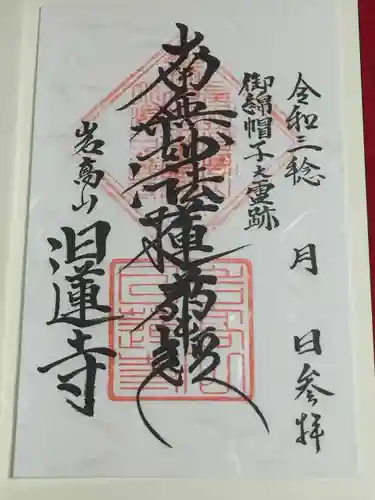 令和三稔 月 日参拝
御綿帽子之霊跡
南無妙法蓮華経
岩高山
日蓮寺